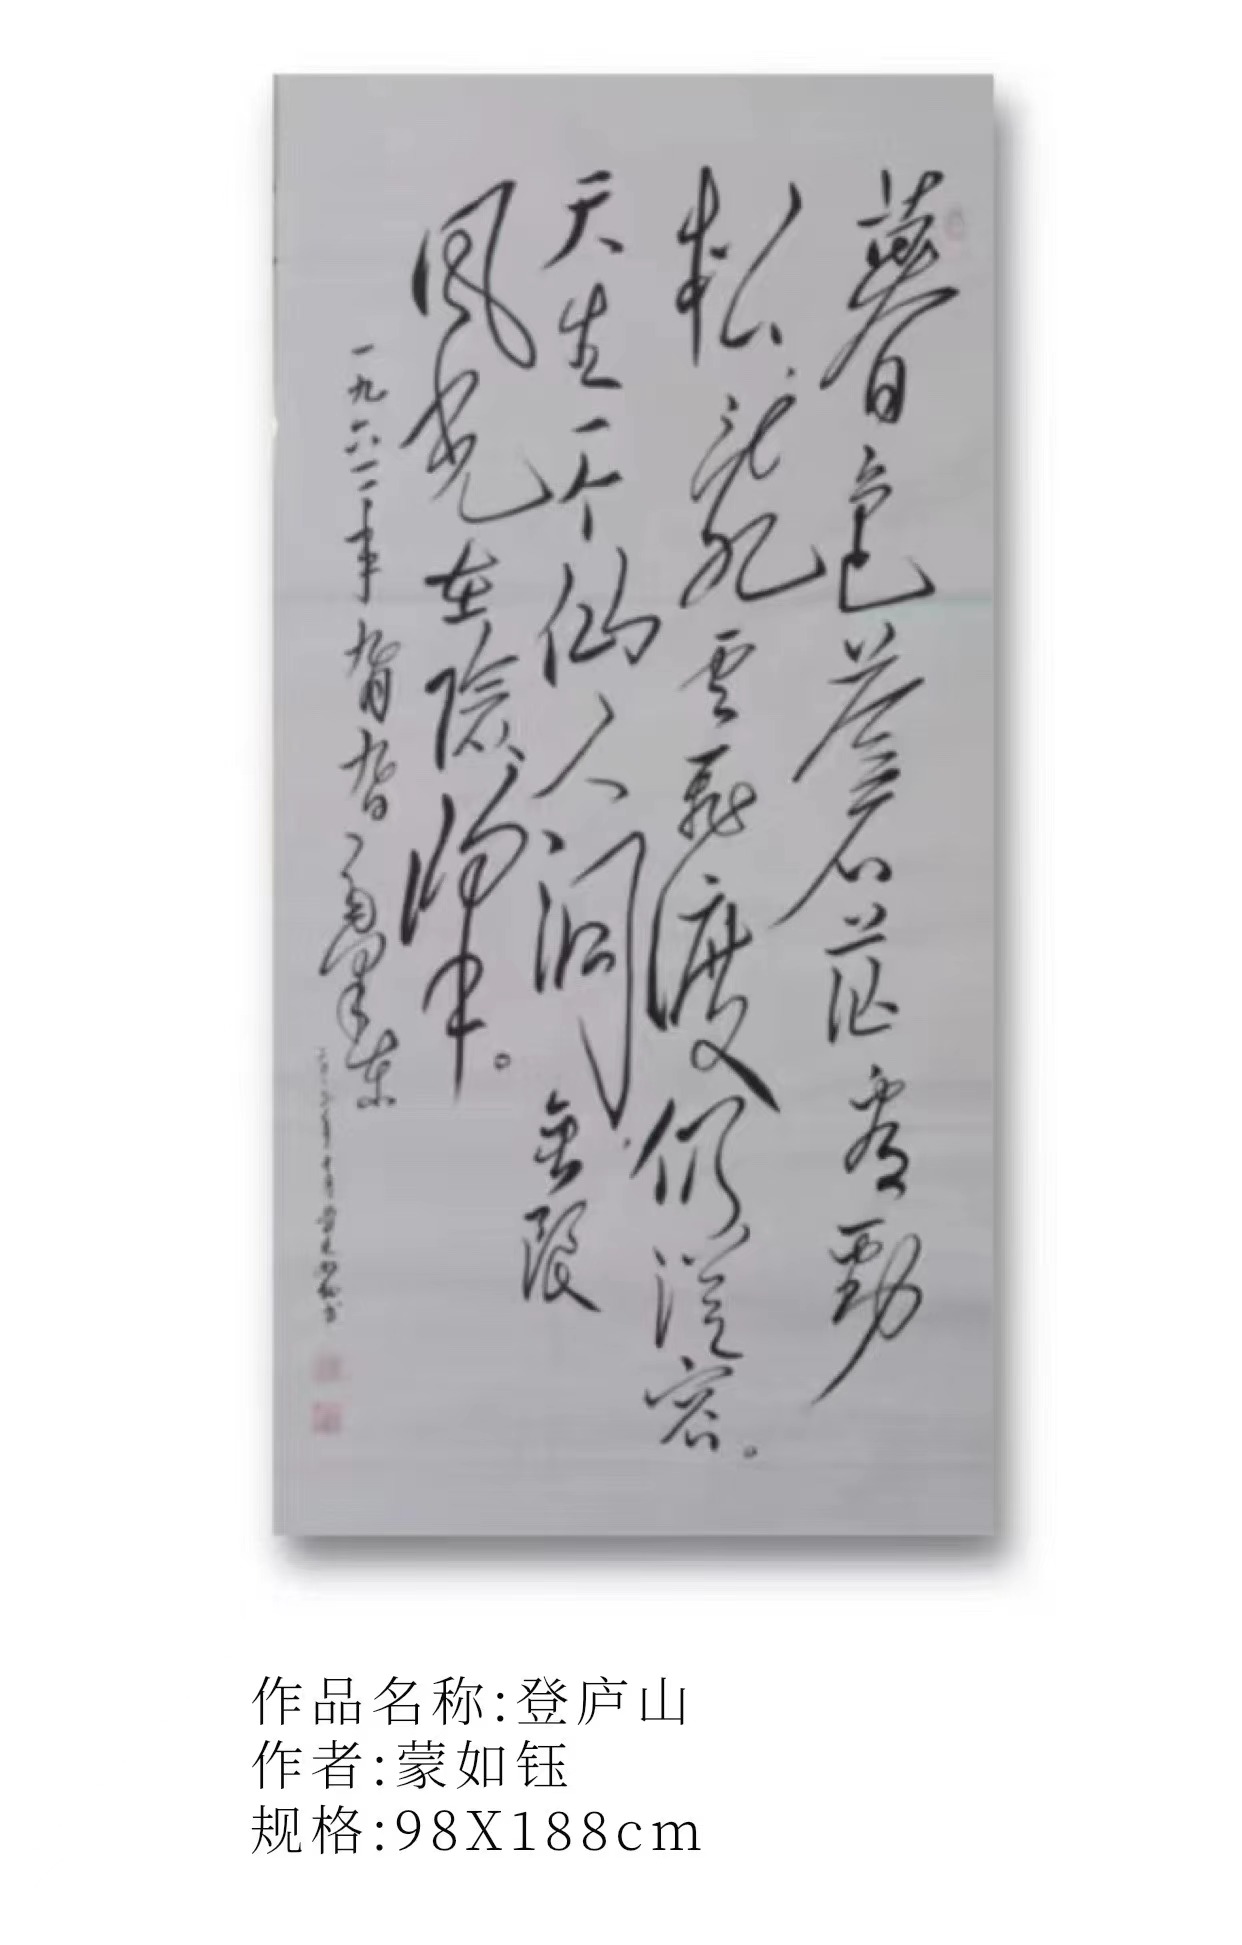 暮色苍茫看劲
松，乱云飞渡仍从容。
天生一个仙人洞，无限
风光在险峰。
一九六一年九月九日 毛泽东
作品名称:登庐山
作者:蒙如钰
规格:98X188cm